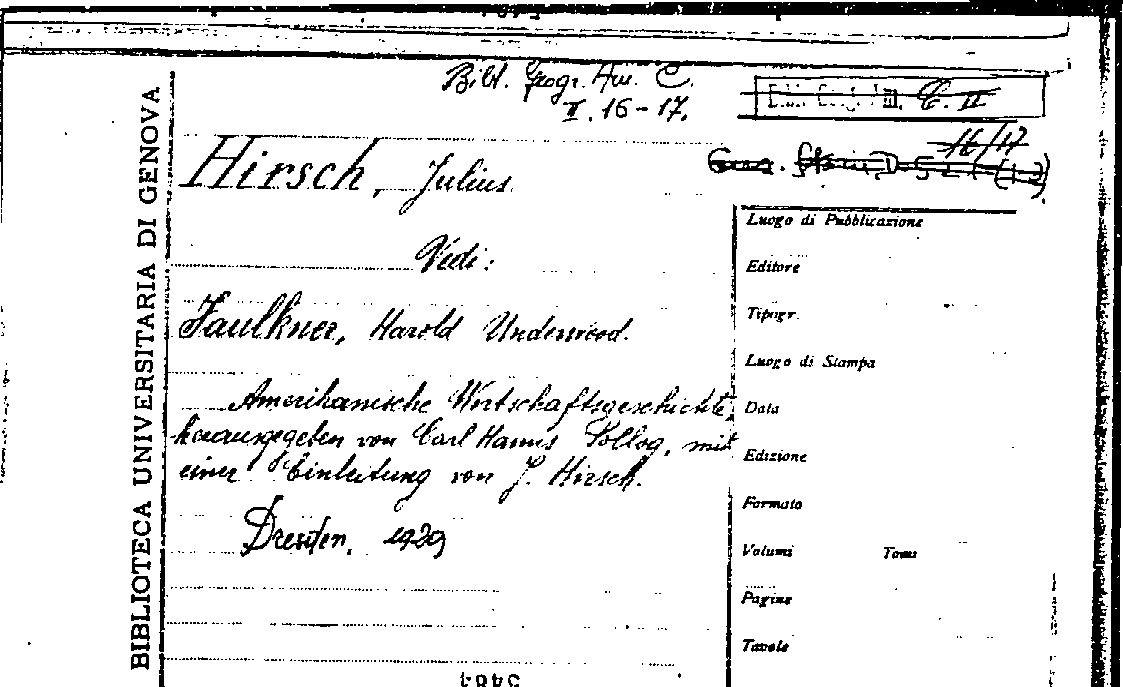 BIBLIOTECA UNIVERSITARIA DI GENOVA
Bibl. Geogr. Am. C.
II. 16-17.
C. II
16/17
Hirsch, Julius.
Vedi:
Faulkner, Harold Underwood.
Amerikanische Wirtschaftsgeschichte,
herausgegeben von Carl Hanns Pollog, mit
einer Einleitung von J. Hirsch.
Dresden, 1929
Luogo di Pubblicazione
Editore
Tipogr.
Luogo di Stampa
Data
Edizione
Formato
Volumi Tomi
Pagine
Tavole